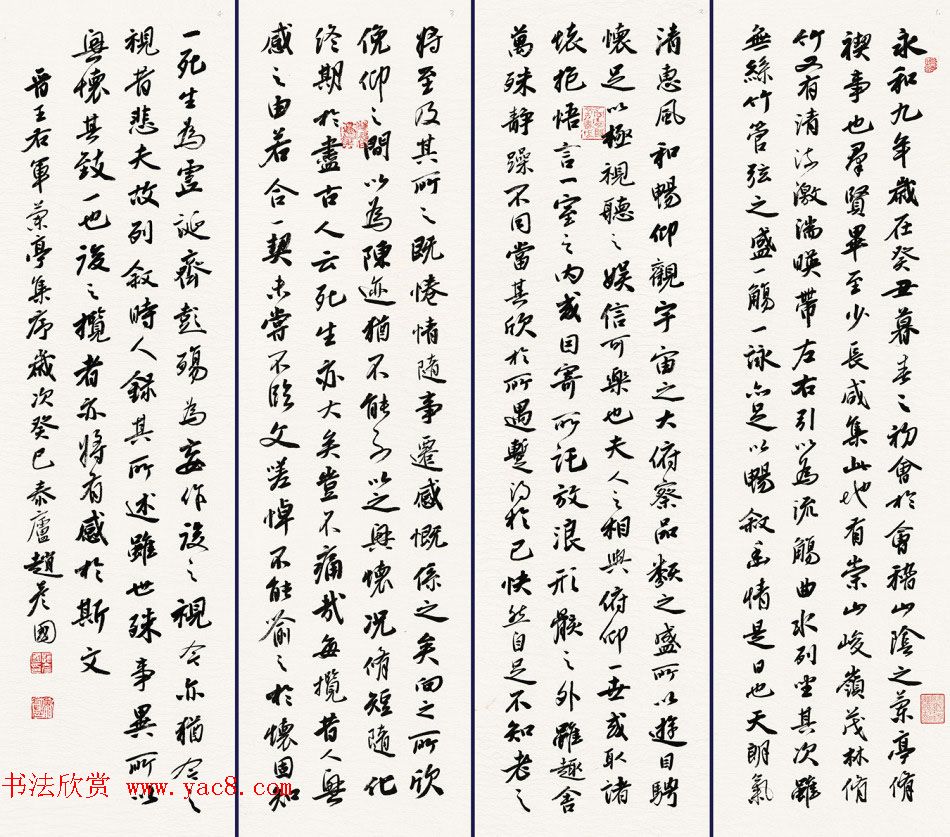 永和九年歲在癸丑暮春之初會於會稽山陰之蘭亭脩
禊事也羣賢畢至少長咸集此地有崇山峻嶺茂林脩
竹又有清流激湍暎帶左右引以為流觴曲水列坐其次雖
無絲竹管弦之盛一觴一詠亦足以暢敘幽情是日也天朗氣
清惠風和暢仰觀宇宙之大俯察品類之盛所以遊目騁
懷足以極視聽之娛信可樂也夫人之相與俯仰一世或取諸
懷抱悟言一室之內或因寄所託放浪形骸之外雖趣舍
萬殊靜躁不同當其欣於所遇暫得於己快然自足不知老之
將至及其所之既惓情隨事遷感慨係之矣向之所欣
俛仰之間以為陳迹猶不能不以之興懷況脩短隨化
終期於盡古人云死生亦大矣豈不痛哉每攬昔人興
感之由若合一契未嘗不臨文嗟悼不能喻之於懷固知
一死生為虛誕齊彭殤為妄作後之視今亦猶今之
視昔悲夫故列敘時人錄其所述雖世殊事異所以
興懷其致一也後之攬者亦將有感於斯文
晉王右軍蘭亭集序歲次癸巳泰廬趙彥國
书法欣赏 www.yac8.com